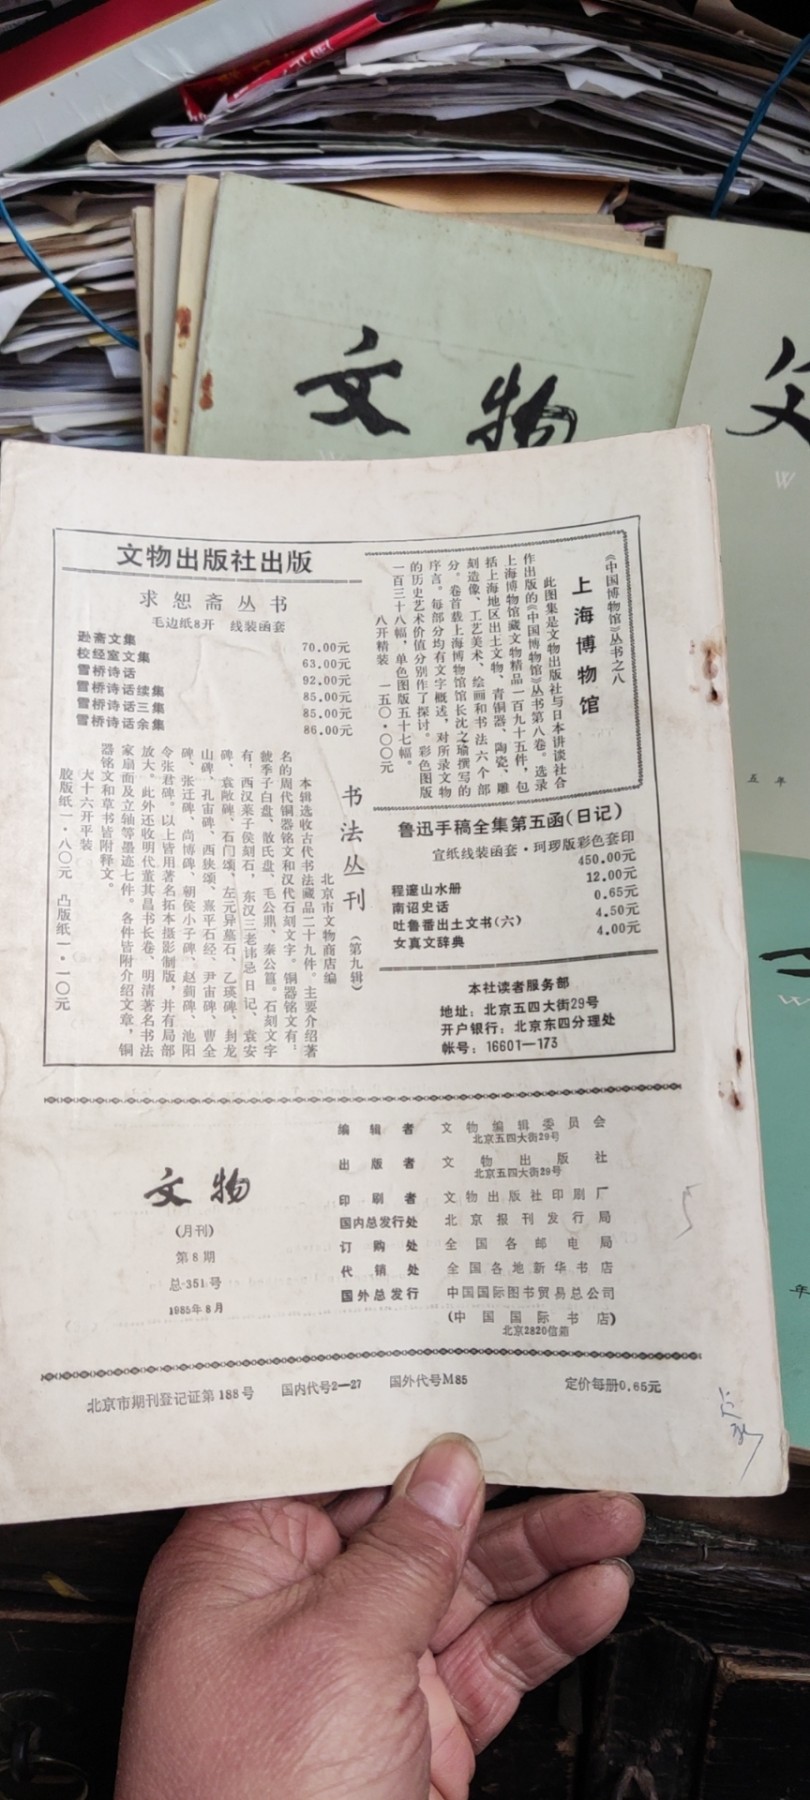 文物
文物出版社出版
求恕斋丛书
毛边纸8开 线装函套
逊斋文集 70.00元
校经室文集 63.00元
雪桥诗话 92.00元
雪桥诗话续集 85.00元
雪桥诗话三集 85.00元
雪桥诗话余集 86.00元
《中国博物馆》丛书之八
上海博物馆
此图集是文物出版社与日本讲谈社合
作出版的《中国博物馆》丛书第八卷。选录
上海博物馆藏文物精品一百九十五件，包
括上海地区出土文物、青铜器、陶瓷、雕
刻造像、工艺美术、绘画和书法六个部
分。卷首载上海博物馆馆长沈之瑜撰写的
序言。每部分均有文字概述，对所录文物
的历史艺术价值分别作了探讨。彩色图版
一百三十八幅，单色图版五十七幅。
八开精装 一五〇·〇〇元
书法丛刊（第九辑）
北京市文物商店编
本辑选收古代书法藏品二十九件。主要介绍著
名的周代铜器铭文和汉代石刻文字。铜器铭文有：
虢季子白盘、散氏盘、毛公鼎、秦公簋。石刻文字
有，西汉莱子侯刻石，东汉三老讳忌日记、袁安
碑、袁敞碑、石门颂、左元异墓石、乙瑛碑、封龙
山碑、孔宙碑、西狭颂、熹平石经、尹宙碑、曹全
碑、张迁碑、尚博碑、朝侯小子碑、赵菿碑、池阳
令张君碑。以上皆用著名拓本摄影制版，并有局部
放大。此外还收明代董其昌书长卷、明清著名书法
家扇面及立轴等墨迹七件。各件皆附介绍文章，铜
器铭文和草书皆附释文。
大十六开平装
胶版纸一·八〇元 凸版纸一·一〇元
鲁迅手稿全集第五函（日记）
宣纸线装函套·珂珞版彩色套印
450.00元
程邃山水册 12.00元
南诏史话 0.65元
吐鲁番出土文书（六） 4.50元
女真文辞典 4.00元
本社读者服务部
地址：北京五四大街29号
开户银行：北京东四分理处
帐号：16601—173
文物
（月刊）
第8期
总351号
1985年8月
编辑者 文物编辑委员会
北京五四大街29号
出版者 文物出版社
北京五四大街29号
印刷者 文物出版社印刷厂
国内总发行处 北京报刊发行局
订购处 全国各邮电局
代销处 全国各地新华书店
国外总发行 中国国际图书贸易总公司
（中国国际书店）
北京2820信箱
北京市期刊登记证第188号 国内代号2—27 国外代号M85 定价每册0.65元